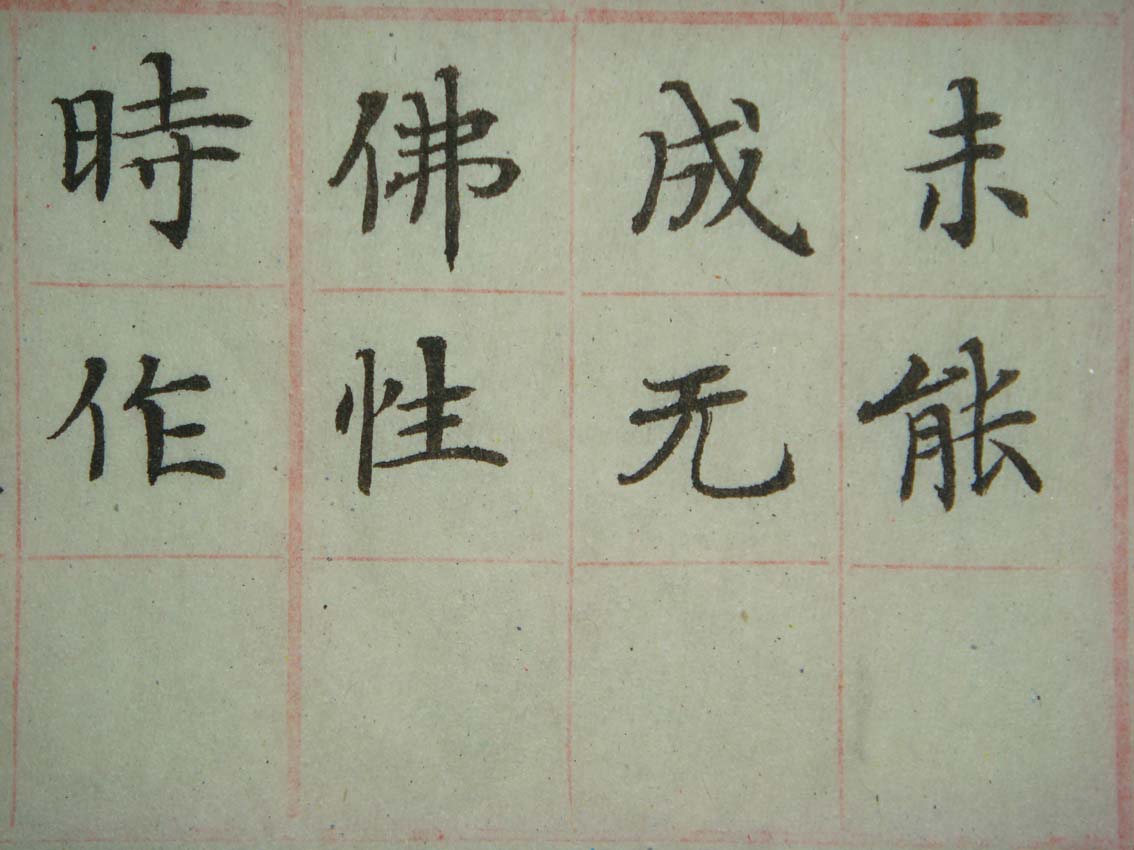 未能
成无
佛性
時作